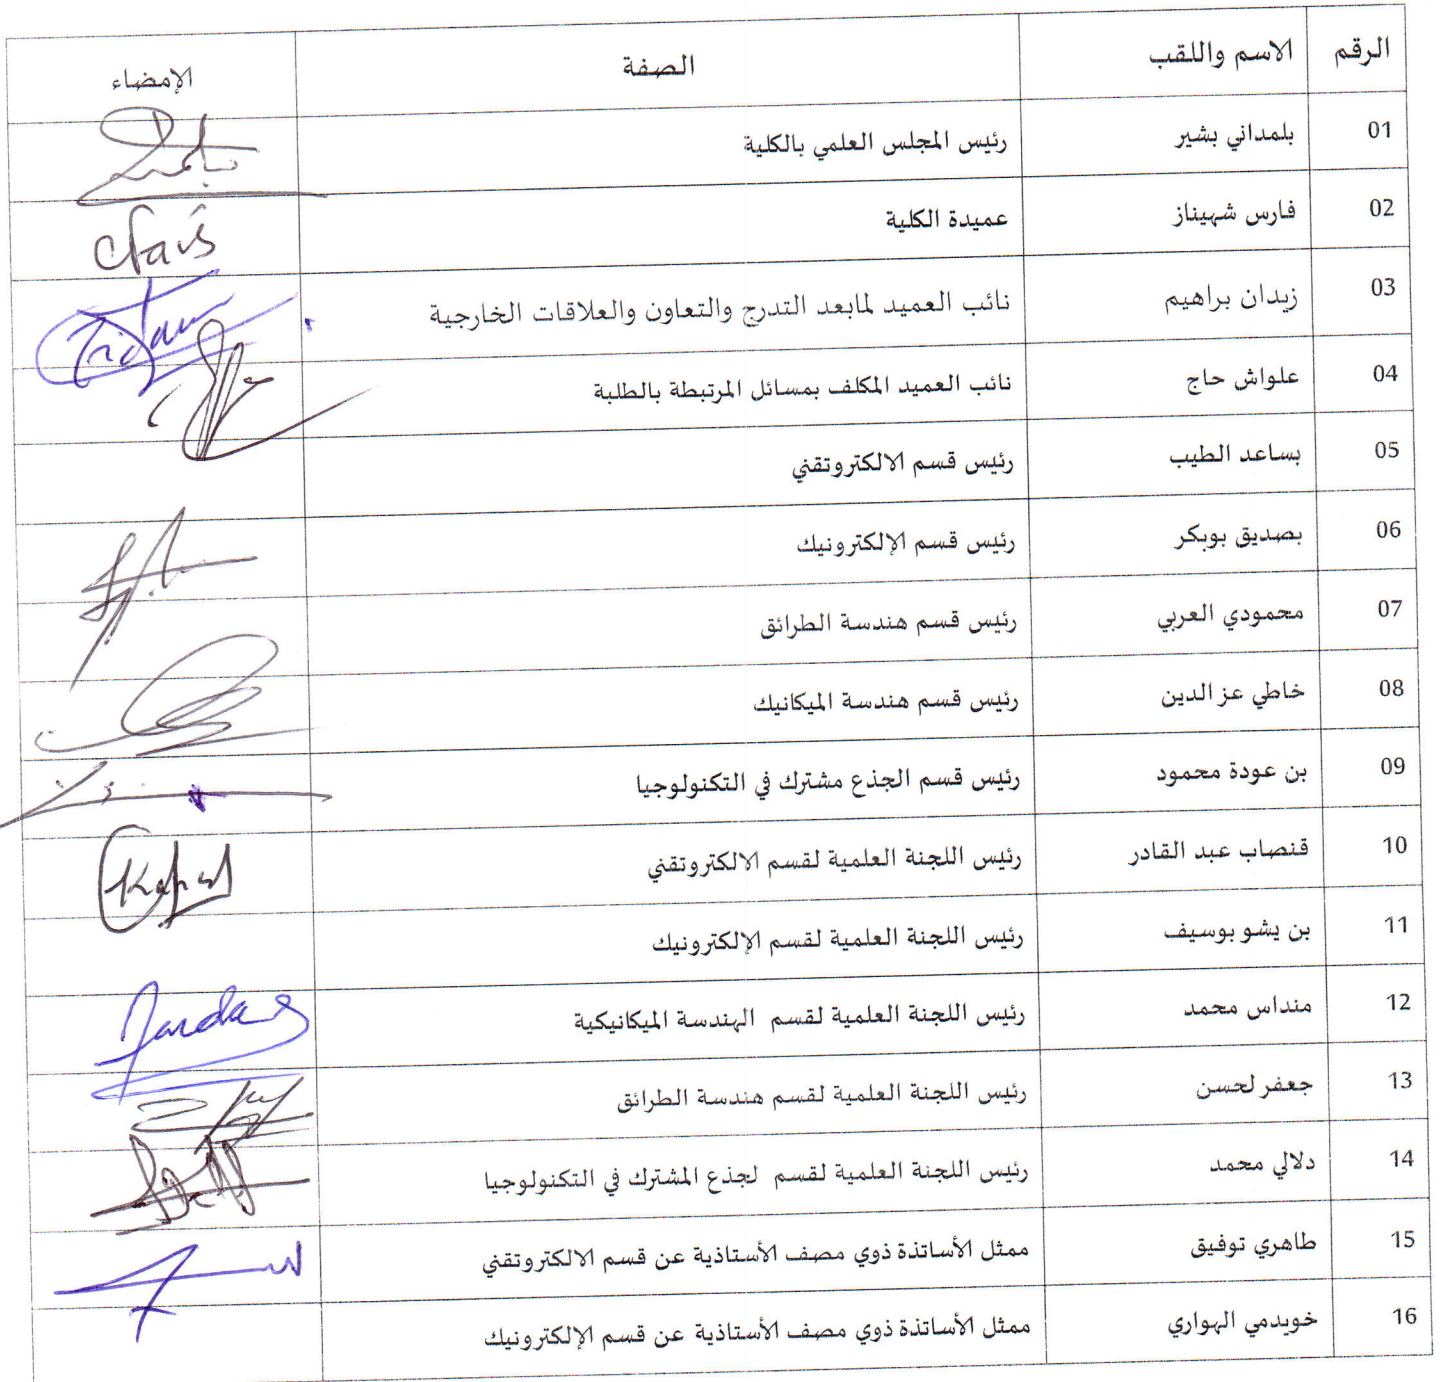 الرقم الاسم واللقب الصفة الإمضاء
01 بلمداني بشير رئيس المجلس العلمي بالكلية
02 فارس شهيناز عميدة الكلية cfaris
03 زيدان براهيم نائب العميد لمابعد التدرج والتعاون والعلاقات الخارجية
04 علواش حاج نائب العميد المكلف بمسائل المرتبطة بالطلبة
05 بساعد الطيب رئيس قسم الالكتروتقني
06 بصديق بوبكر رئيس قسم الإلكترونيك
07 محمودي العربي رئيس قسم هندسة الطرائق
08 خاطي عز الدين رئيس قسم هندسة الميكانيك
09 بن عودة محمود رئيس قسم الجذع مشترك في التكنولوجيا
10 قنصاب عبد القادر رئيس اللجنة العلمية لقسم الالكتروتقني
11 بن يشو بوسيف رئيس اللجنة العلمية لقسم الإلكترونيك
12 منداس محمد رئيس اللجنة العلمية لقسم الهندسة الميكانيكية
13 جعفر لحسن رئيس اللجنة العلمية لقسم هندسة الطرائق
14 دلالي محمد رئيس اللجنة العلمية لقسم لجذع المشترك في التكنولوجيا
15 طاهري توفيق ممثل الأساتذة ذوي مصف الأستاذية عن قسم الالكتروتقني
16 خويدمي الهواري ممثل الأساتذة ذوي مصف الأستاذية عن قسم الإلكترونيك